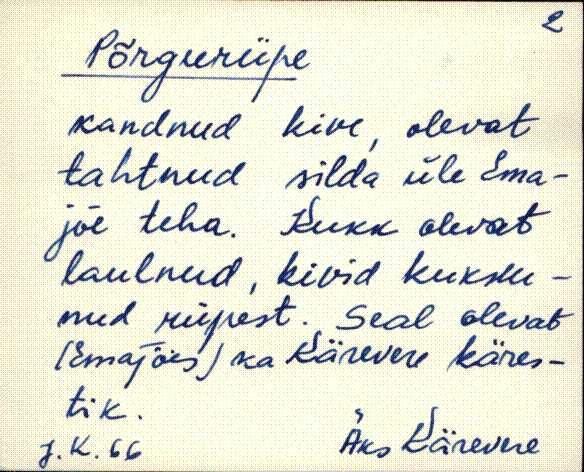 2
Põrgurüpe
kandnud kive, olevat
tahtnud silda üle Ema-
jõe teha. Kukk olevat
laulnud, kivid kuksu-
nud rüpest. Seal olevat
(Emajões) ka Kärevere käres-
tik.
J.K. 66 Äks Kärevere